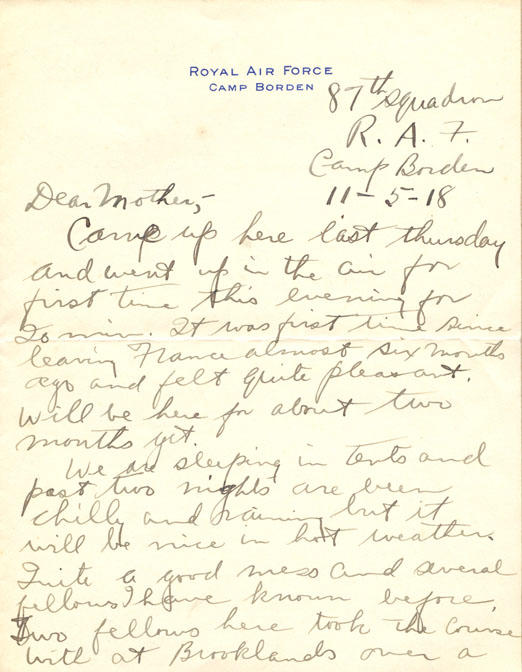 ROYAL AIR FORCE
CAMP BORDEN
87th Squadron
R. A. F.
Camp Borden
11-5-18
Dear Mother,-
Came up here last thursday
and went up in the air for
first time this evening for
20 min. It was first time since
leaving France almost six months
ago and felt quite pleasant.
Will be here for about two
months yet.
We are sleeping in tents and
past two nights are been
chilly and raining but it
will be nice in hot weather.
Quite a good mess and several
fellows I have known before.
Two fellows here took the course
with at Brooklands over a